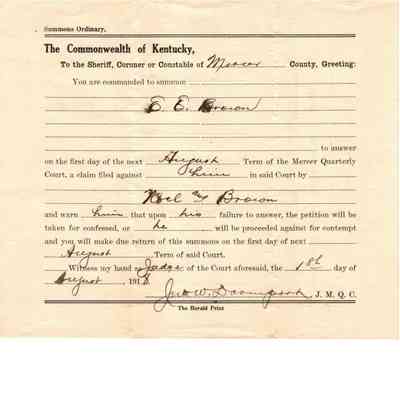 Summons Ordinary.
The Commonwealth of Kentucky,
To the Sheriff, Coroner or Constable of Mercer County, Greeting:
You are commanded to summon
E. E. Brown
to answer
on the first day of the next August Term of the Mercer Quarterly
Court, a claim filed against him in said Court by
Noel & Brown
and warn him that upon his failure to answer, the petition will be
taken for confessed, or he will be proceeded against for contempt
and you will make due return of this summons on the first day of next
August Term of said Court.
Witness my hand as Judge of the Court aforesaid, the 1 day of
August, 191
Jno W. J. M. Q. C.
The Herald Print